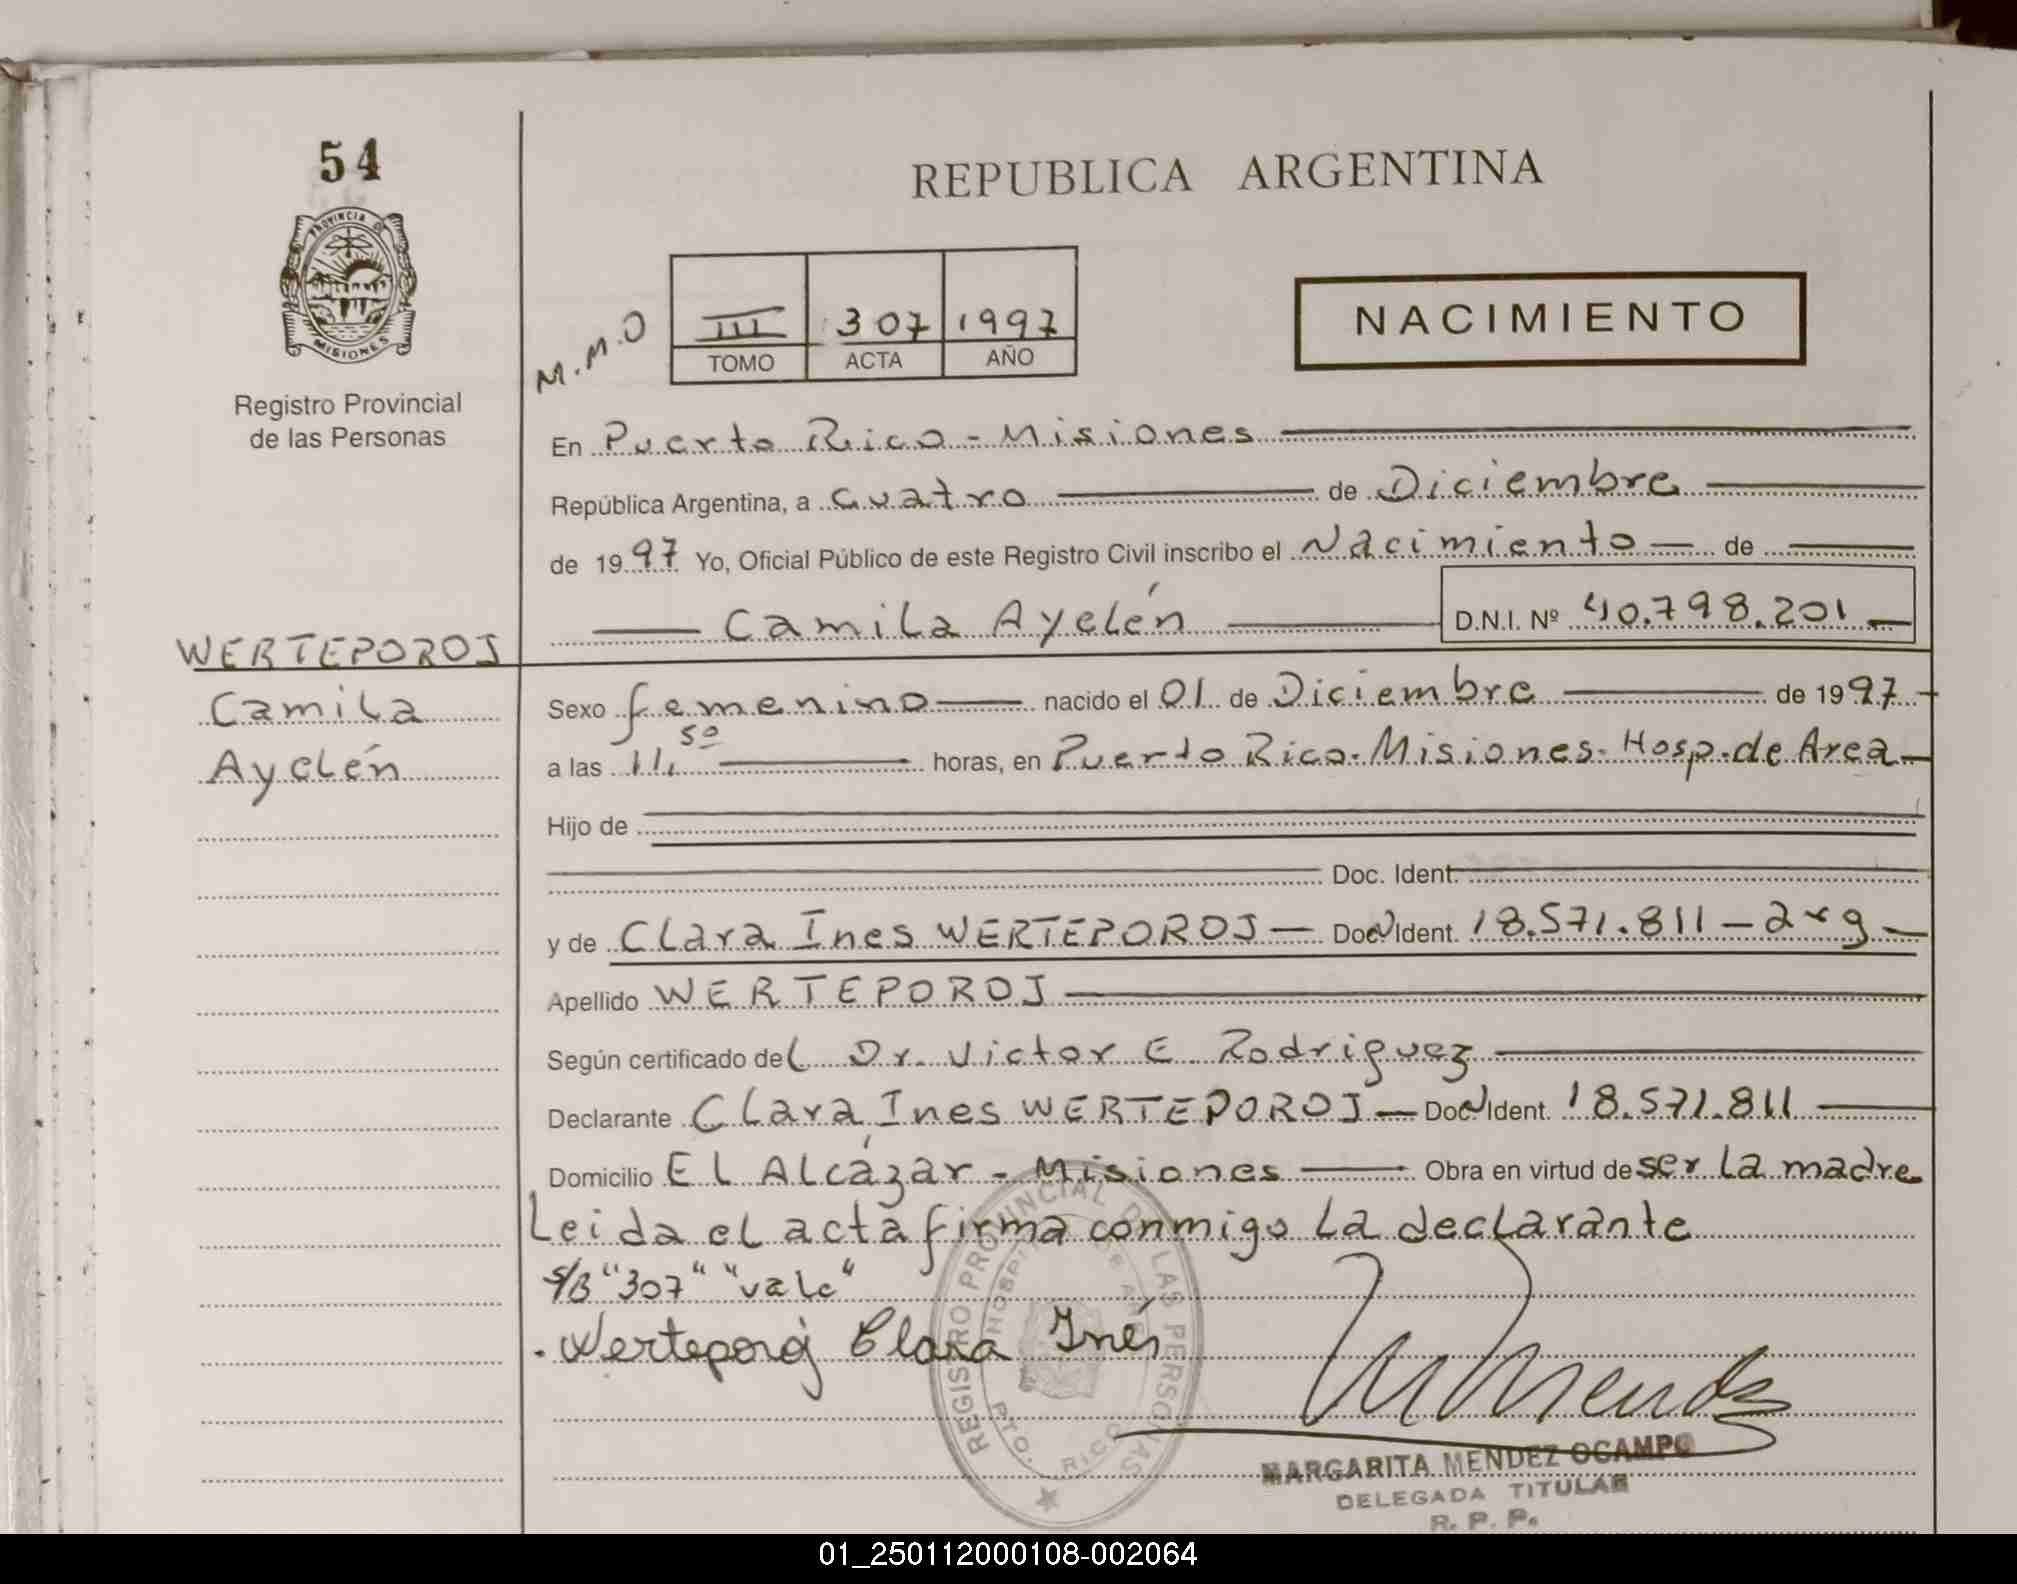 54
REPUBLICA ARGENTINA
PROVINCIA DE MISIONES
Registro Provincial
de las Personas
M.M.O
III 307 1997
TOMO ACTA AÑO
NACIMIENTO
En Puerto Rico - Misiones
República Argentina, a cuatro de Diciembre
de 1997 Yo, Oficial Público de este Registro Civil inscribo el Nacimiento de
Camila Ayelén D.N.I. Nº 40.798.201
WERTEPOROJ
Camila
Ayelén
Sexo femenino nacido el 01 de Diciembre de 1997
a las 11,50 horas, en Puerto Rico - Misiones - Hosp. de Area
Hijo de
Doc. Ident.
y de Clara Ines WERTEPOROJ Doc. Ident. 18.571.811 - arg
Apellido WERTEPOROJ
Según certificado del Dr. Victor E. Rodriguez
Declarante Clara Ines WERTEPOROJ Doc. Ident. 18.571.811
Domicilio El Alcázar - Misiones Obra en virtud de ser la madre
Leida el acta firma conmigo la declarante
S/B "307" "vale"
Werteporoj Clara Inés
REGISTRO PROVINCIAL DE LAS PERSONAS
HOSPITAL DE AREA
PTO. RICO
MARGARITA MENDEZ OCAMPO
DELEGADA TITULAR
R. P. P.
01_250112000108-002064